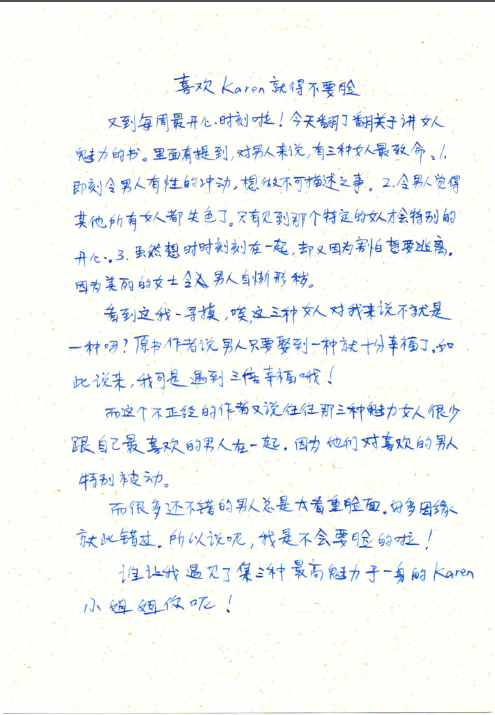 喜欢Karen就得不要脸
又到每周最开心时刻啦！今天翻了翻关于讲女人
魅力的书。里面有提到，对男人来说，有三种女人最致命。1.
即刻令男人有性的冲动，想做不可描述之事。2.令男人觉得
其他所有女人都失色了。只有见到那个特定的女人才会特别的
开心。3.虽然想时时刻刻在一起，却又因为害怕想要逃离。
因为美丽的女士会令男人自惭形秽。
看到这我一寻摸，唉这三种女人对我来说不就是
一种吗？原书作者说男人只要娶到一种就十分幸福了。如
此说来，我可是遇到三倍幸福哦！
而这个不正经的作者又说往往那三种魅力女人很少
跟自己最喜欢的男人在一起。因为他们对喜欢的男人
特别被动。
而很多还不错的男人总是太看重脸面。好多因缘
就此错过。所以说呢，我是不会要脸的啦！
谁让我遇见了集三种最高魅力于一身的Karen
小姐姐你呢！